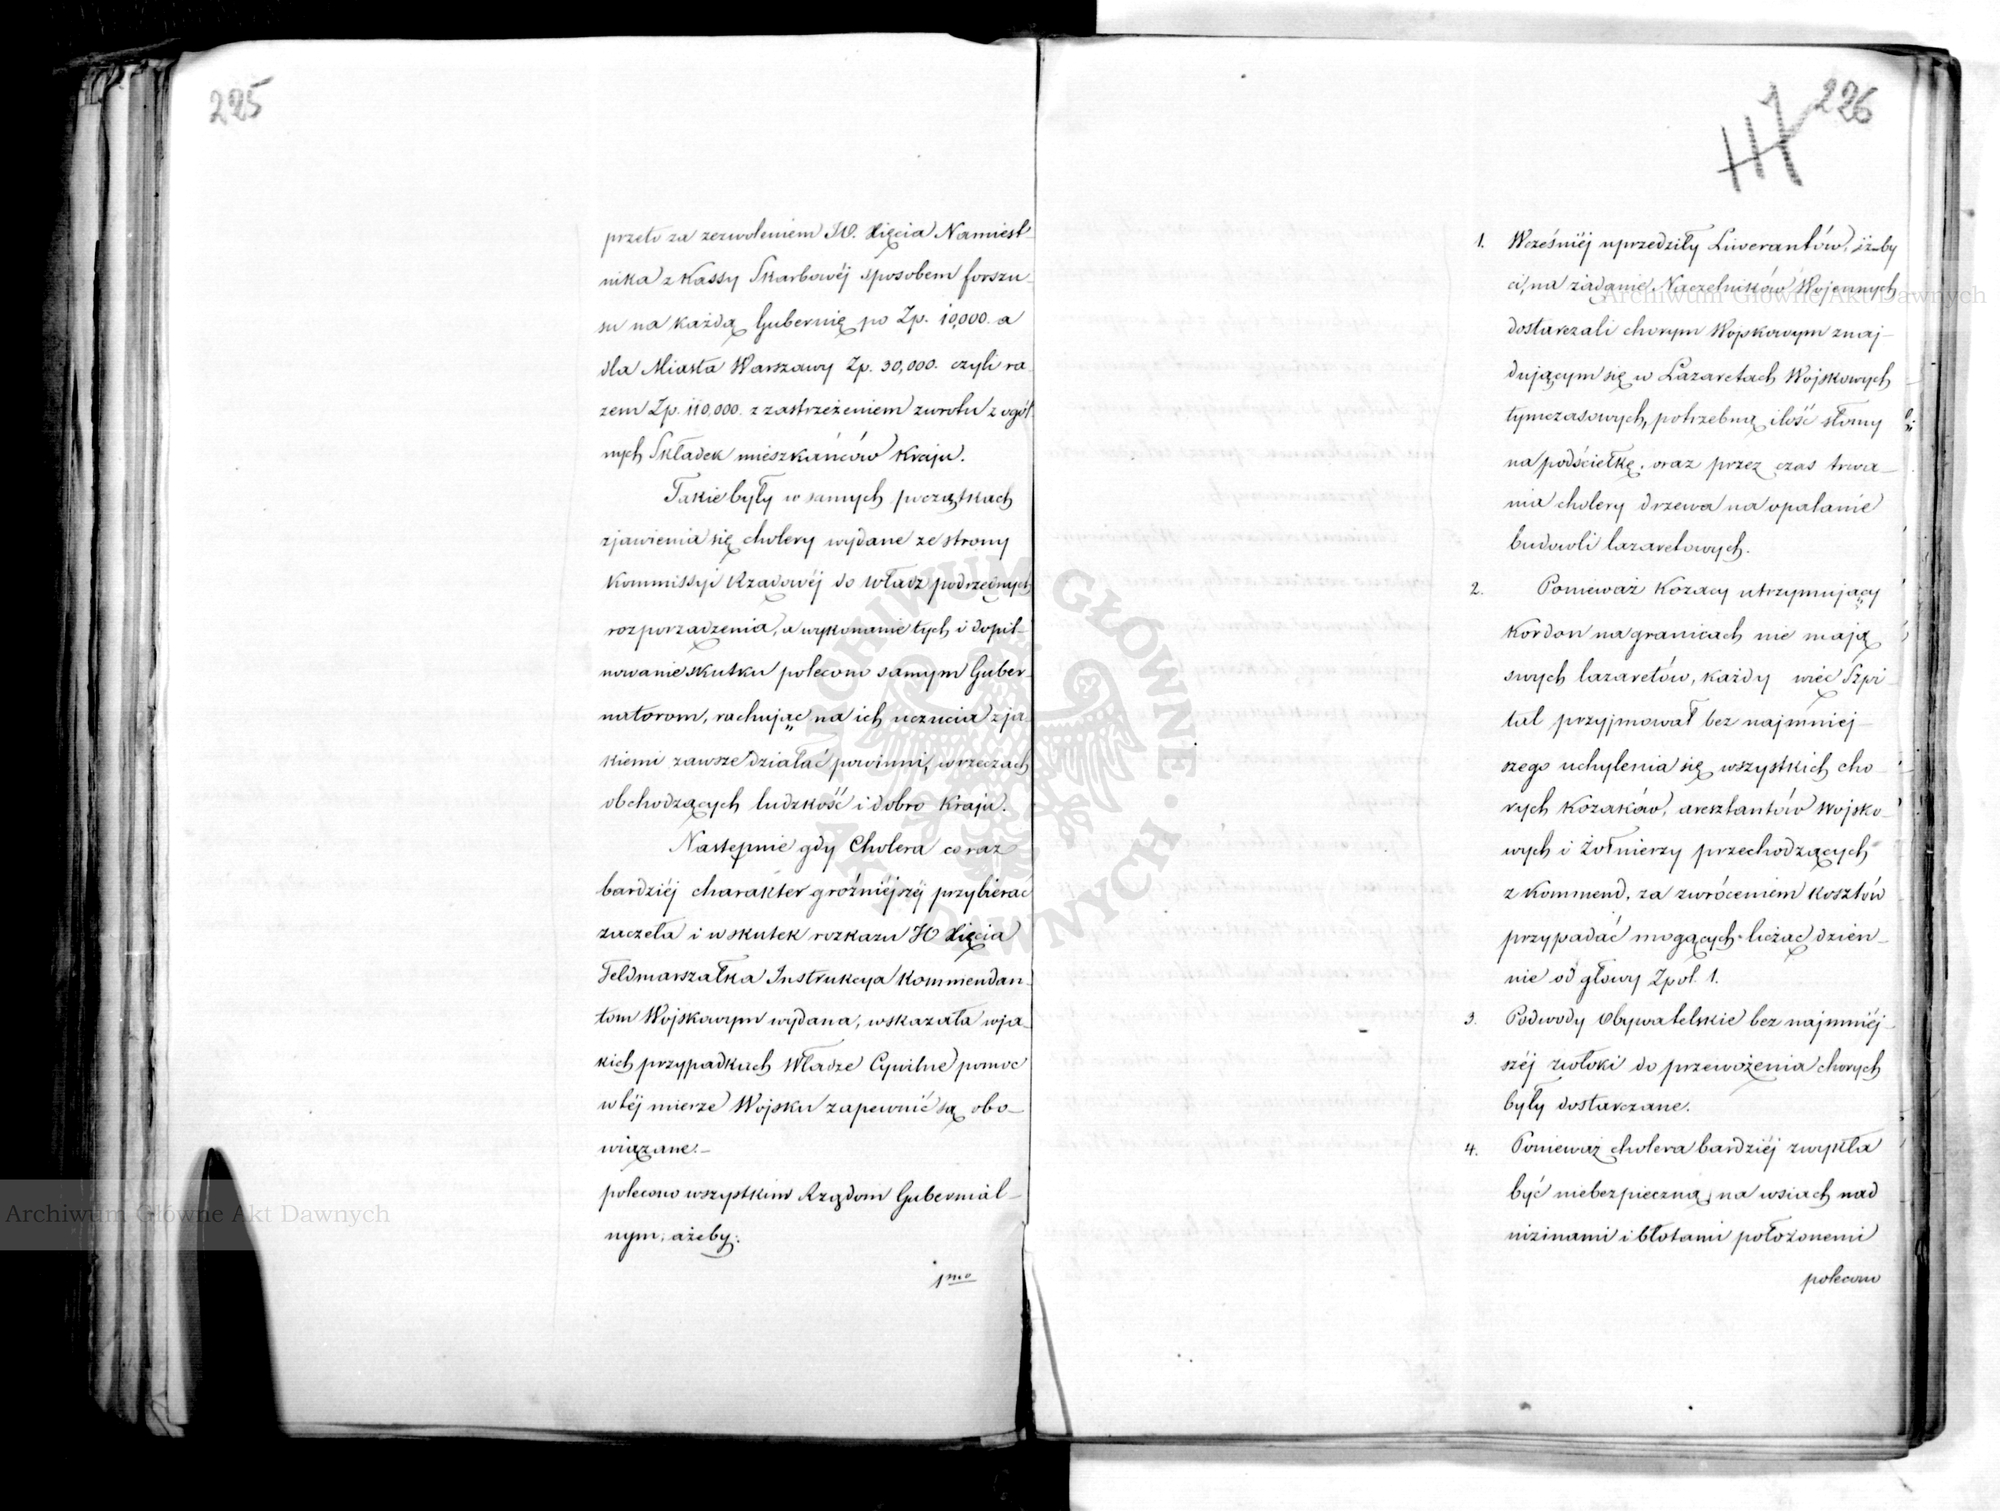 225
przeto za zezwoleniem JO. Xięcia Namiest-
nika z Kassy Skarbowéj sposobem forszu-
su na każdą Gubernię po Zp. 10,000. a
dla Miasta Warszawy Zp. 30,000. czyli ra-
zem Zp. 110,000. z zastrzeżeniem zwrotu z ogól-
nych Składek mieszkańców Kraju.
Takie były w samych początkach
zjawienia się cholery wydane ze strony
Kommissyi Rządowéj do Władz podrzędnych
rozporządzenia, a wykonanie tych i dopil-
nowanie skutku polecono samym Guber-
natorom, rachując na ich uczucia z ja-
kiemi zawsze działać powinni, w rzeczach
obchodzących ludzkość i dobro Kraju.
Następnie gdy Cholera coraz
bardziéj charakter groźniejszéj przybierać
zaczeła i w skutek rozkazu JO Xięcia
Feldmarszałka Instrukcya Kommendan-
tom Wojskowym wydana, wskazała w ja-
kich przypadkach Władze Cywilne pomoc
w téj mierze Wojsku zapewnić są obo-
wiązane.-
polecono wszystkim Rządom Gubernial-
nym, ażeby:
1mo
226
1. Wcześniéj uprzedziły Liwerantów, iżby
ci, na żądanie Naczelników Wojennych
dostarczali chorym Wojskowym znaj-
dującym się w Lazaretach Wojskowych
tymczasowych, potrzebną ilość słomy
na podściełkę, oraz przez czas trwa-
nia cholery drzewa na opalanie
budowli lazaretowych.
2. Ponieważ Kozacy utrzymujący
Kordon na granicach nie mają
swych lazaretów, każdy więc Szpi-
tal przyjmował bez najmniej-
szego uchylenia się wszystkich cho-
rych Kozaków, aresztantów Wojsko-
wych i Żołnierzy przechodzących
z Kommend, za zwróceniem kosztów
przypadać mogących licząc dzien-
nie od głowy Zpol. 1.
3. Podwody Obywatelskie bez najmniéj-
széj zwłoki do przewożenia chorych
były dostarczane.
4. Ponieważ cholera bardziéj zwykła
być niebezpieczną na wsiach nad
nizinami i błotami położonemi
polecono
Archiwum Główne Akt Dawnych
Archiwum Główne Akt Dawnych
ARCHIWUM GŁÓWNE AKT DAWNYCH